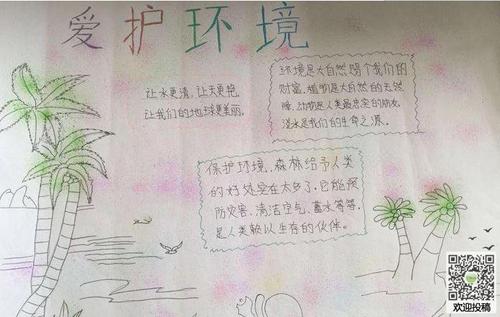 爱护环境
让水更清，让天更艳
让我们的地球更美丽。
环境是大自然赐个我们的
财富，植物是大自然的天然
肺，动物是人类最忠实的朋友，
淡水是我们的生命之源。
保护环境，森林给予人类
的好处实在太多了，它能预
防灾害、清洁空气、蓄水等等，
是人类赖以生存的伙伴。
欢迎投稿